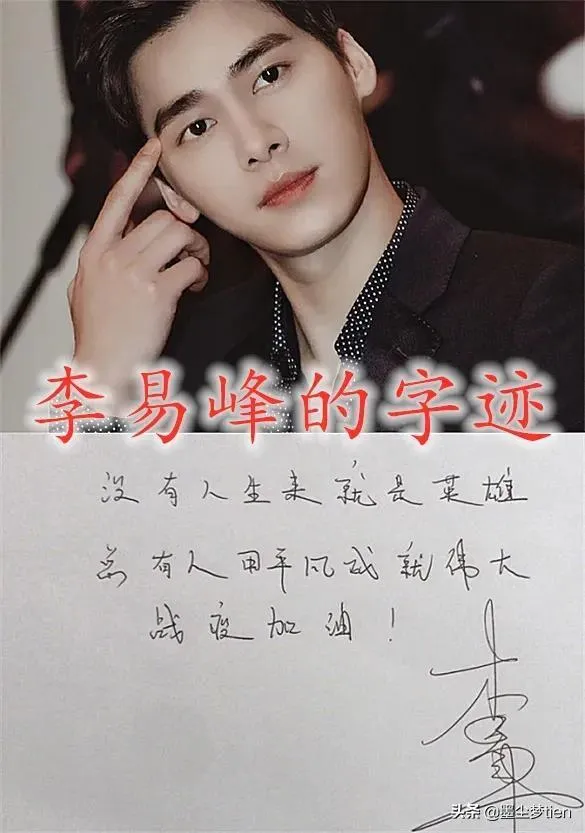 李易峰的字迹
没有人生来就是英雄
总有人用平凡成就伟大
战疫加油！
头条 @墨尘梦tien